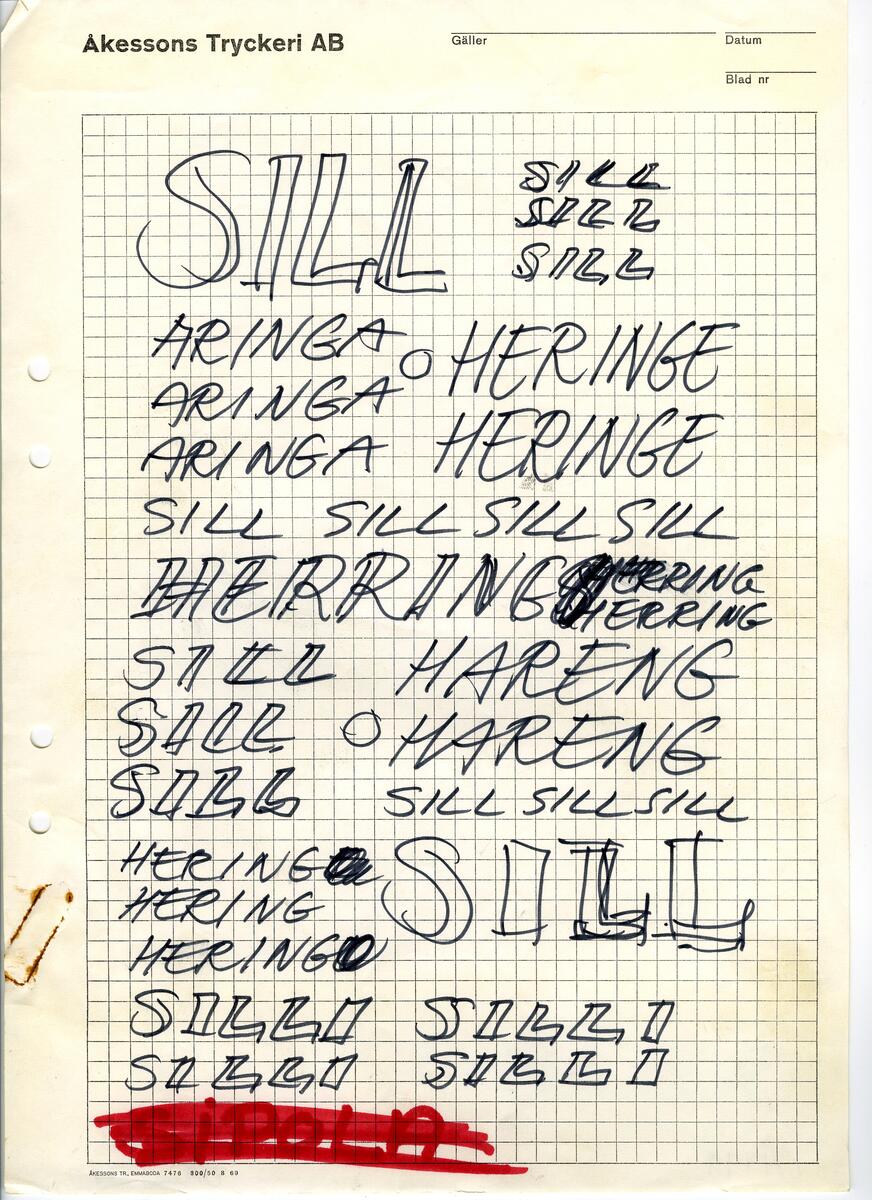 Åkessons Tryckeri AB
Gäller
Datum
Blad nr
SILL
SILL
SILL
SILL
ARINGA
ARINGA
ARINGA
HERINGE
HERINGE
SILL SILL SILL SILL
HERRING HERRING
HERRING
SILL
SILL
SILL
HARENG
HARENG
SILL SILL SILL
HERING
HERING
HERING
SILL
SILLI SILLI
SILLI SILLI
SIPOLA
ÅKESSONS TR., EMMABODA 7476 300/50 8 69